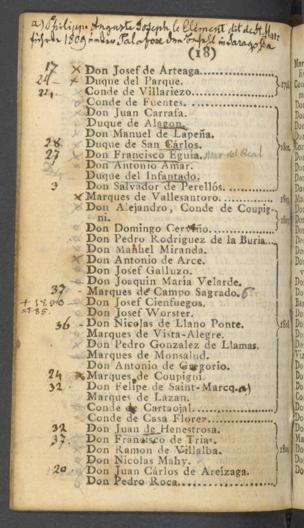 a) Philippe Auguste Joseph le Clément dit de St. Marc
(18)
17 × Don Josef de Arteaga
24 × Duque del Parque.
Conde de Villariezo
Conde de Fuentes.
× Don Juan Carrafa.
Duque de Alagon.
Don Manuel de Lapeña.
28 Duque de San Cárlos.
27 × Don Francisco Eguia. Mar. del Real
Don Antonio Amar.
Duque del Infantado.
3 Don Salvador de Perellós.
× Marques de Vallesantoro.
× Don Alejandro, Conde de Coupigni.
Don Domingo
Don Pedro Rodriguez de la Buria
Don Manuel Miranda.
× Don Antonio de Arce.
Don Josef Galluzo.
Don Joaquin Maria Velarde.
37 Marques de Campo Sagrado.
Don Josef Cienfuegos.
Don Josef Worster.
36 Don Nicolas de Llano Ponte.
Marques de Vista-Alegre.
Don Pedro Gonzalez de Llamas.
Marques de Monsalud.
Don Antonio de Gregorio.
24 × Marques de Coupigni.
32 Don Felipe de Saint-Marcq. a)
Marques de Lazan.
Conde de Cartaojal.
Conde de Casa Florez
32 Don Juan de Henestrosa.
37 Don Francisco de Trias.
Don Ramon de Villalba.
Don Nicolas Mahy.
20 Don Juan Cárlos de Areizaga.
Don Pedro Roca